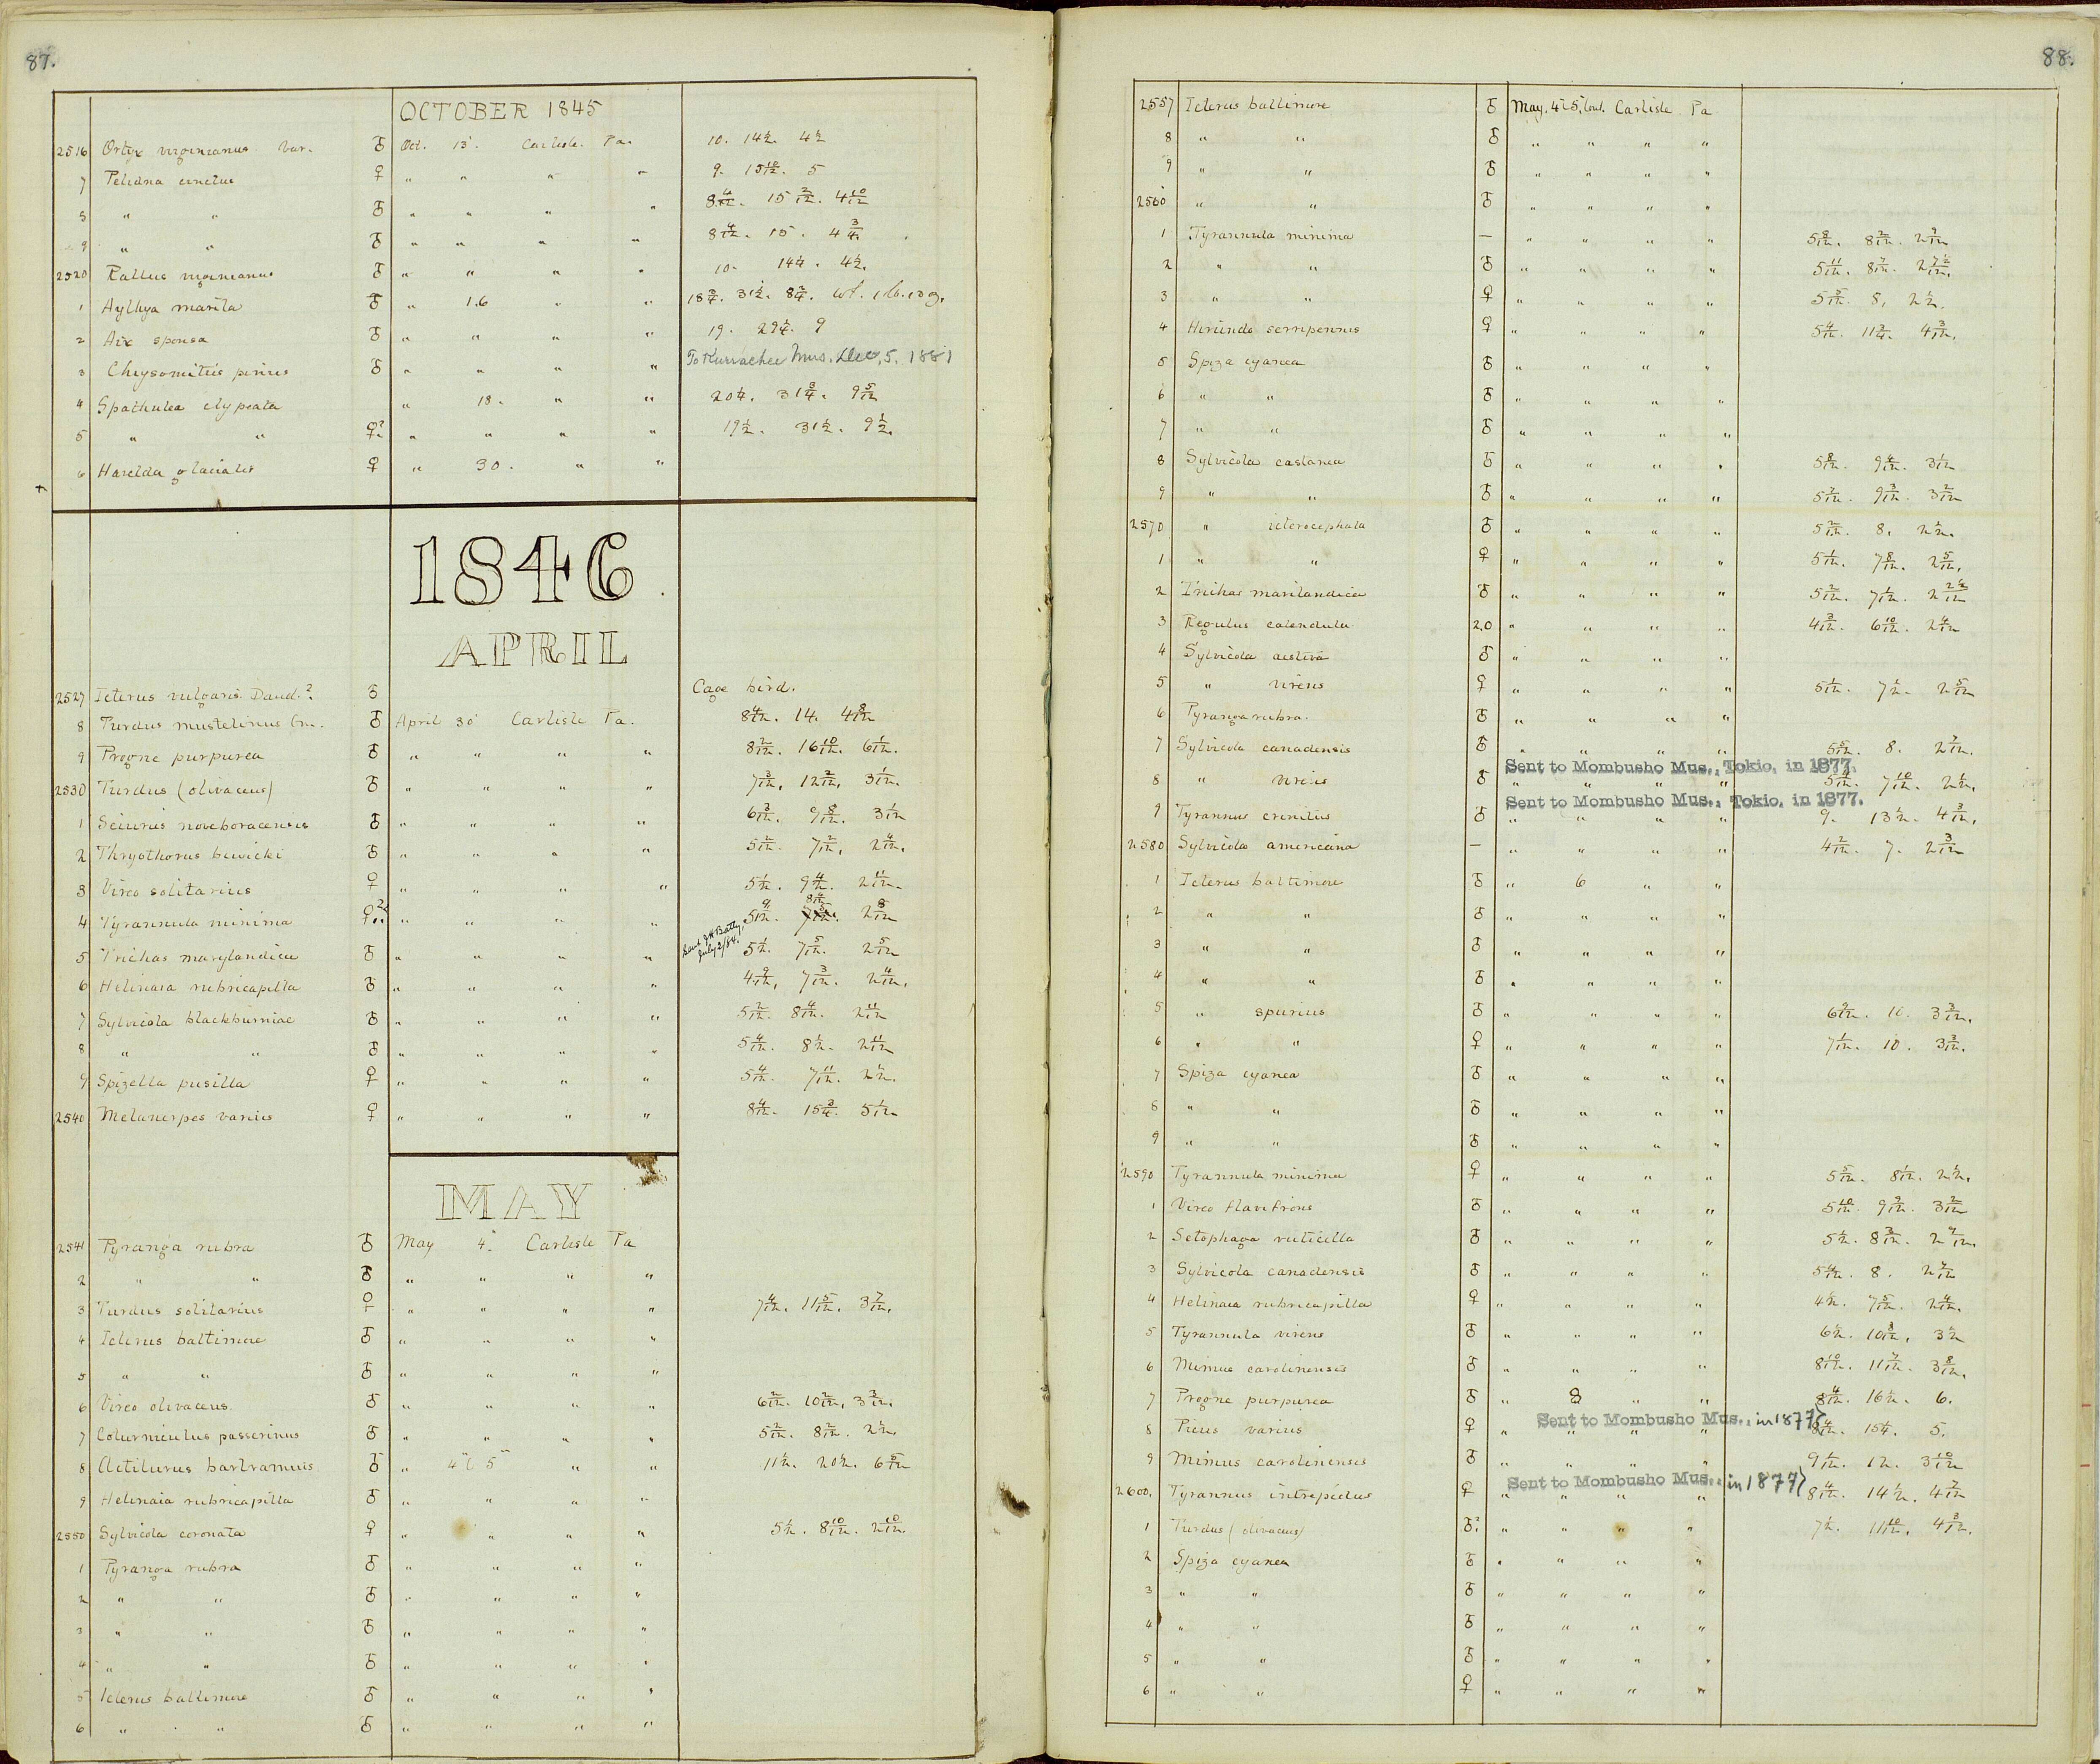 87.
OCTOBER 1845
2516 Ortyx virginianus Var. ♂ Oct. 13. Carlisle. Pa. 10. 14½. 4½
7 Pelidna cinclus ♀ " " " " 9. 15 10/12. 5
8 " " ♂ " " " " 8 4/12. 15 2/12. 4 10/12
9 " " ♂ " " " " 8 4/12. 15. 4 3/4.
2520 Rallus virginianus ♂ " " " " 10. 14¼. 4½.
1 Aythya marila ♂ " 16 " " 18 3/4. 31½. 8 3/4. wt. 1 lb. 13 g.
2 Aix sponsa ♂ " " " " 19. 29¼. 9
3 Chrysomitris pinus ♂ " " " " To Kurrachee Mus. Dec. 5. 1881
4 Spathulea clypeata " 18. " " 20¼. 31 3/4. 9 5/12
5 " " ♀? " " " " 19½. 31½. 9½.
6 Harelda glacialis ♀ " 30. " "
1846
APRIL
2527 Icterus vulgaris. Daud.? ♂ Cage bird.
8 Turdus mustelinus Gm. ♂ April 30 Carlisle Pa. 8 4/12. 14. 4 8/12
9 Progne purpurea ♂ " " " " 8 2/12. 16 10/12. 6 1/12.
2530 Turdus (olivaceus) ♂ " " " " 7 3/12, 12 2/12, 3 1/12.
1 Seiurus noveboracensis ♂ " " " " 6 3/12. 9 8/12. 3 1/12
2 Thryothorus bewicki ♂ " " " " 5 2/12. 7 2/12, 2 4/12.
3 Vireo solitarius ♀ " " " " 5½. 9 4/12. 2 11/12.
4 Tyrannula minima ♀? " " " " 5 9/12. 8 4/12. 2 8/12
5 Trichas marylandica ♂ " " " " Sent J H Batty, July 2/84. 5½. 7 5/12. 2 5/12
6 Helinaia rubricapilla ♂ " " " " 4 9/12, 7 3/12. 2 4/12.
7 Sylvicola blackburniae ♂ " " " " 5 2/12. 8 4/12. 2 11/12
8 " " ♂ " " " " 5 4/12. 8½. 2 11/12
9 Spizella pusilla ♀ " " " " 5 4/12. 7 11/12. 2½.
2540 Melanerpes varius ♀ " " " " 8 4/12. 15 3/4. 5 1/12
MAY
2541 Pyranga rubra ♂ May 4. Carlisle Pa
2 " " ♂ " " " "
3 Turdus solitarius ♀ " " " " 7 4/12. 11 5/12. 3 7/12.
4 Icterus baltimore ♂ " " " "
5 " " ♂ " " " "
6 Vireo olivaceus. ♂ " " " " 6 2/12. 10 2/12, 3 3/12.
7 Coturniculus passerinus ♂ " " " " 5 2/12. 8 2/12. 2½.
8 Actiturus bartramius ♂ " 4 & 5 " " 11½. 20½. 6 8/12
9 Helinaia rubricapilla ♂ " " " "
2550 Sylvicola coronata ♀ " " " " 5½. 8 10/12. 2 10/12.
1 Pyranga rubra ♂ " " " "
2 " " ♂ " " " "
3 " " ♂ " " " "
4 " " ♂ " " " "
5 Icterus baltimore ♂ " " " "
6 " " ♂ " " " "
88.
2557 Icterus baltimore ♂ May. 4 & 5, Carlisle Pa
8 " " ♂ " " " "
9 " " ♂ " " " "
2560 " " ♂ " " " "
1 Tyrannula minima — " " " " 5 8/12. 8 2/12. 2 7/12
2 " " ♂ " " " " 5 11/12. 8 7/12. 2 7½/12.
3 " " ♀ " " " " 5 5/12. 8. 2½.
4 Hirundo serripennis ♀ " " " " 5 4/12. 11 3/4. 4 3/12.
5 Spiza cyanea ♂ " " " "
6 " " ♂ " " " "
7 " " ♂ " " " "
8 Sylvicola castanea ♂ " " " " 5 8/12. 9 4/12. 3 1/12
9 " " ♂ " " " " 5 7/12. 9 3/12. 3 2/12
2570 " icterocephala ♂ " " " " 5 2/12. 8. 2½.
1 " " ♀ " " " " 5 1/12. 7 8/12. 2 5/12.
2 Trichas marilandica ♂ " " " " 5 2/12. 7½. 2 2½/12
3 Regulus calendula 20 " " " " 4 3/12. 6 10/12. 2 4/12
4 Sylvicola aestiva ♂ " " " "
5 " virens ♀ " " " " 5 1/12. 7½. 2 5/12
6 Pyranga rubra. ♂ " " " "
7 Sylvicola canadensis ♂ " " " " 5 5/12. 8. 2 7/12.
Sent to Mombusho Mus., Tokio, in 1877.
8 " virens ♂ " " " " 5 4/12. 7 10/12. 2½.
Sent to Mombusho Mus., Tokio, in 1877.
9 Tyrannus crinitus ♂ " " " " 9. 13½. 4 3/12.
2580 Sylvicola americana — " " " " 4 2/12. 7. 2 3/12
1 Icterus baltimore ♂ " 6 " "
2 " " ♂ " " " "
3 " " ♂ " " " "
4 " " ♂ " " " "
5 " spurius ♂ " " " " 6 9/12. 10. 3 3/12.
6 " " ♀ " " " " 7 1/12. 10. 3 3/12.
7 Spiza cyanea ♂ " " " "
8 " " ♂ " " " "
9 " " ♂ " " " "
2590 Tyrannula minima ♀ " " " " 5 5/12. 8 1/12. 2½.
1 Vireo flavifrons ♂ " " " " 5 10/12. 9 9/12. 3 2/12
2 Setophaga ruticilla ♂ " " " " 5½. 8 3/12. 2 7/12.
3 Sylvicola canadensis ♂ " " " " 5 4/12. 8. 2 7/12
4 Helinaia rubricapilla ♀ " " " " 4½. 7 5/12. 2 4/12.
5 Tyrannula virens ♂ " " " " 6½. 10 8/12, 3½
6 Mimus carolinensis ♂ " " " " 8 10/12. 11 7/12. 3 8/12.
7 Progne purpurea ♂ " 8 " " 8 4/12. 16½. 6.
Sent to Mombusho Mus., in 1877
8 Picus varius ♀ " " " " 8 4/12. 15¼. 5.
9 Mimus carolinensis ♂ " " " " 9 1/12. 12. 3 10/12
Sent to Mombusho Mus., in 1877
2600. Tyrannus intrepidus ♀ " " " " 8 4/12. 14½. 4 7/12
1 Turdus (olivaceus) ♂? " " " " 7½. 11 10/12. 4 3/12.
2 Spiza cyanea ♂ " " " "
3 " " ♂ " " " "
4 " " ♂ " " " "
5 " " ♂ " " " "
6 " " ♀ " " " "